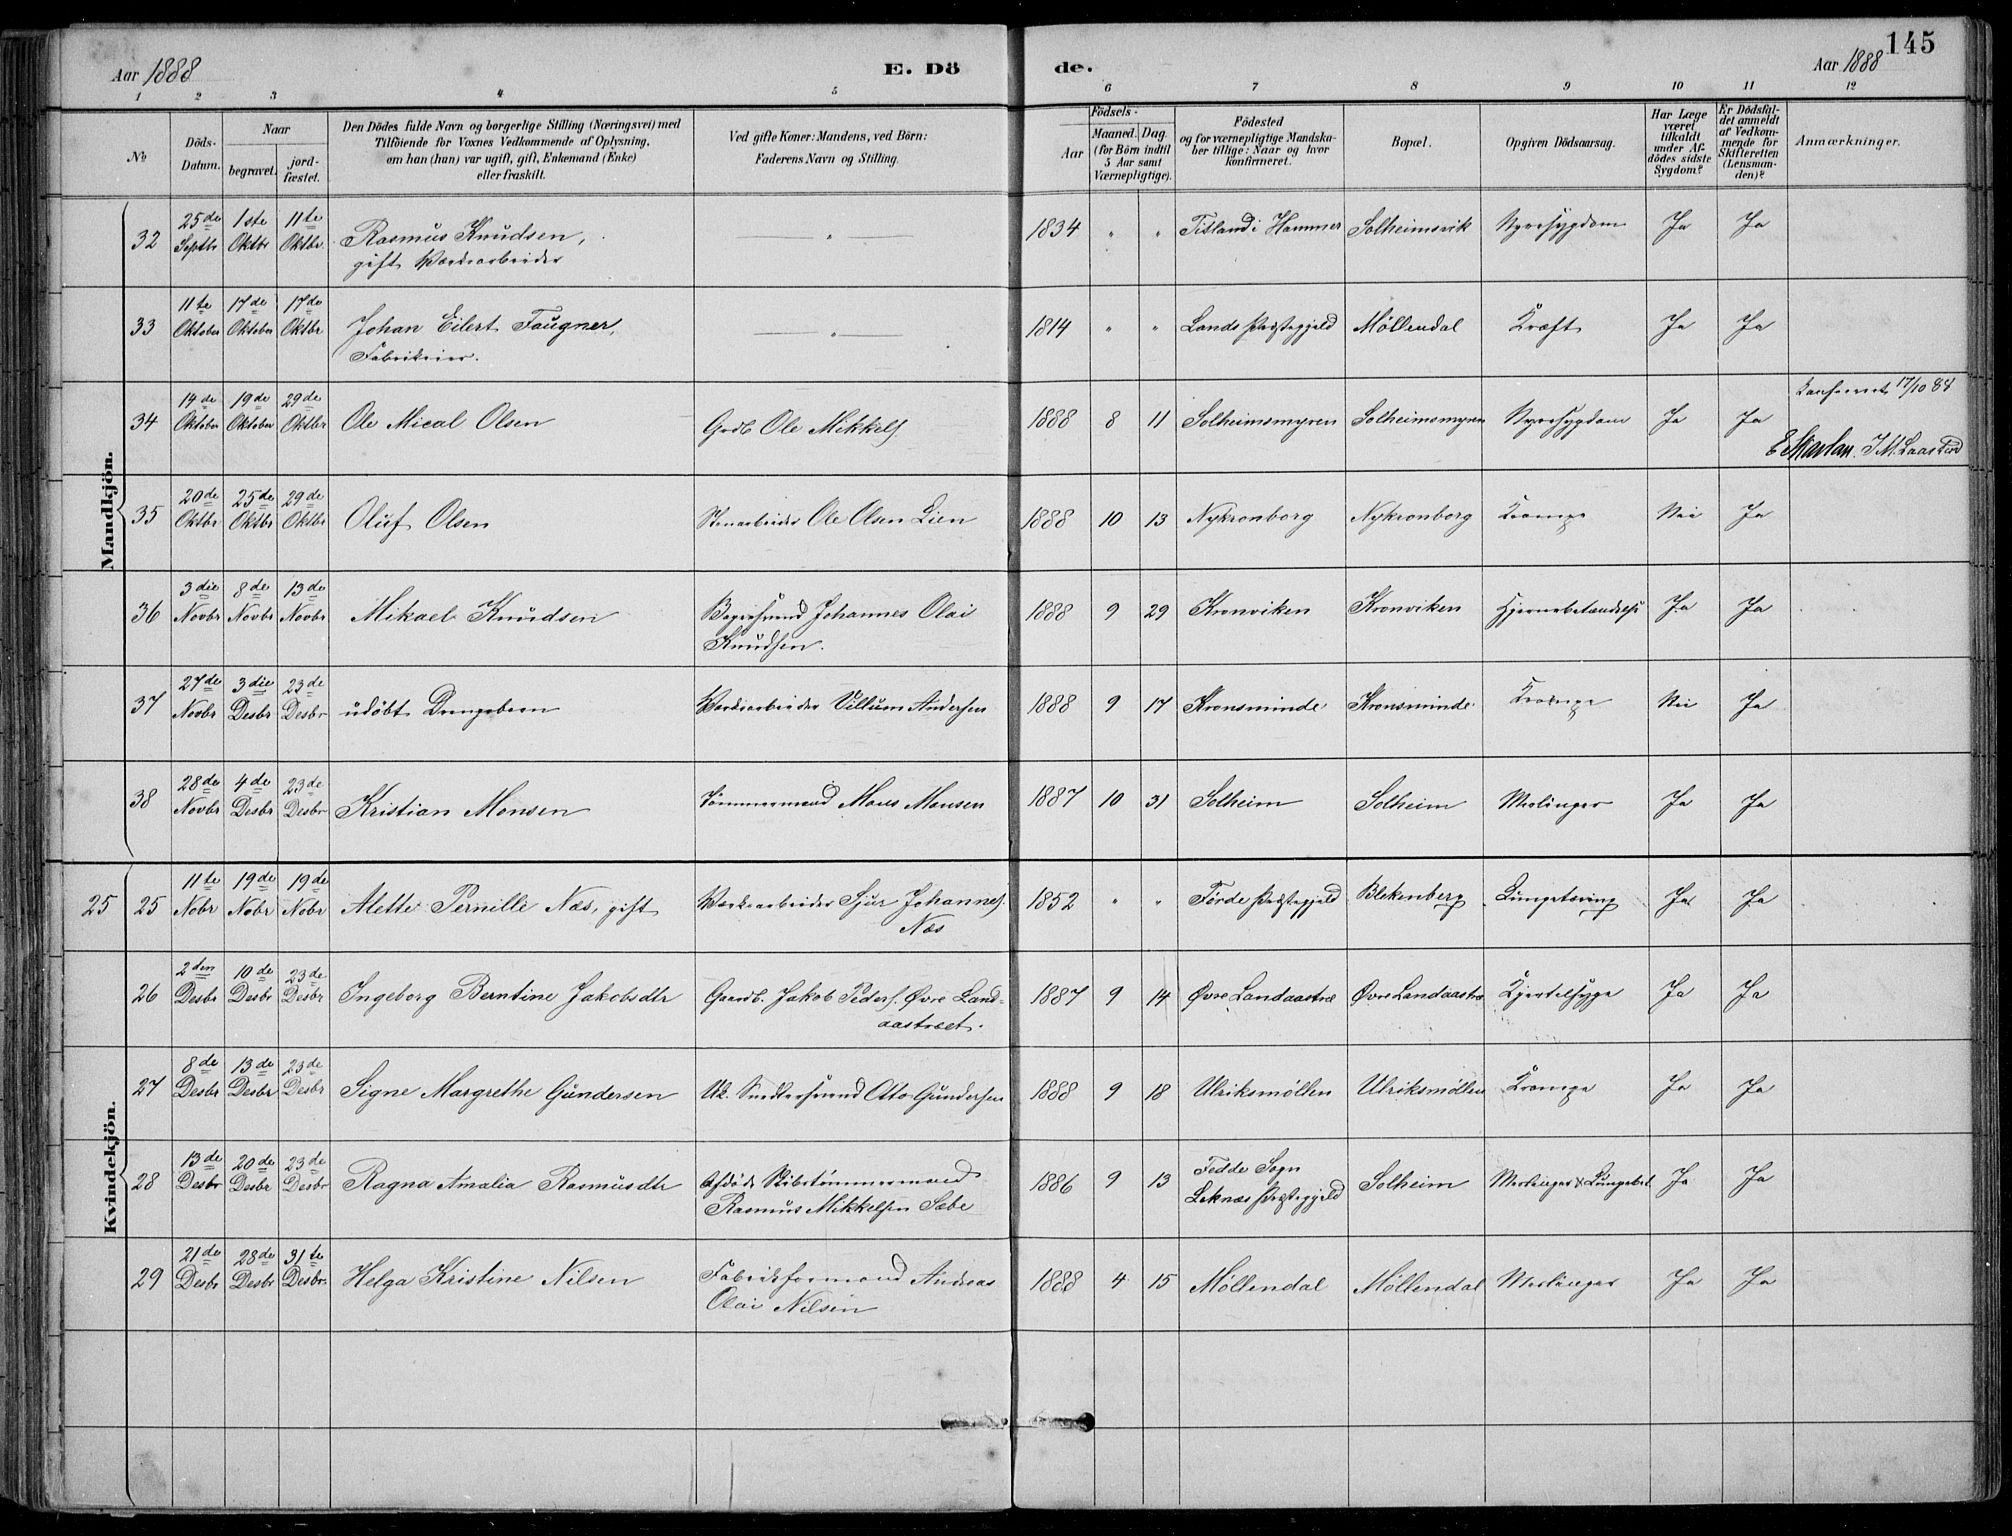 145
Aar 1888
E. Dö
de.
Aar 1888
1 2 3 4 5 6 7 8 9 10 11 12
No
Döds-Datum.
Naar
begravet.
jord-fæstet.
Den Dödes fulde Navn og borgerlige Stilling (Næringsvei) med
Tilföiende for Voxnes Vedkommende af Oplysning,
om han (hun) var ugift, gift, Enkemand (Enke)
eller fraskilt.
Ved gifte Koner: Mandens, ved Börn:
Faderens Navn og Stilling.
Födsels-
Aar
Maaned. Dag.
(for Börn indtil
5 Aar samt
Værnepligtige).
Födested
og for værnepligtige Mandska-
ber tillige: Naar og hvor
konfirmeret.
Bopæl.
Opgiven Dödsaarsag.
Har Læge
været
tilkaldt
under Af-
dödes sidste
Sygdom?
Er Dödsfal-
det anmeldt
af Vedkom-
mende for
Skifteretten
(Lensman-
den)?
Anmærkninger.
Mandkjön.
32 25de Septbr 1ste Oktbr 11te Oktbr. Rasmus Knudsen, gift Værksarbeider " 1834 " " Titland i Hammer Solheimsvik Nyresygdom Ja Ja
33 11te Oktober 17de Oktober 17de Oktbr Johan Eilert Faugner, Fabrikeier. " 1814 " " Lands Præstegjeld Möllendal Kræft Ja Ja
34 14de Oktober 19de Oktober 29de Oktbr Ole Mical Olsen Grdb Ole Mikkels. 1888 8 11 Solheimsmyren Solheimsmyren Nyresygdom Ja Ja 17/10 88
E Skavlan. J.M.
35 20de Oktbr 25de Oktbr 29de Oktbr Oluf Olsen Stenarbeider Ole Olsen Lien 1888 10 13 Nykronborg Nykronborg Krampe Nei Ja
36 3die Novbr 8de Novbr 13de Novbr Mikael Knudsen Bagersvend Johannes Olai Knudsen. 1888 9 29 Kronviken Kronviken Hjernebetændelse Ja Ja
37 27de Novbr 3die Desbr 23de Desbr udöbt Drengebarn Værksarbeider Villum Andersen 1888 9 17 Kronsminde Kronsminde Krampe Nei Ja
38 28de Novbr 4de Desbr 23de Desbr Kristian Monsen Tömmermand Mons Monsen 1887 10 31 Solheim Solheim Meslinger Ja Ja
Kvindekjön.
25 25 11te Nobr 19de Nobr 19de Nobr Alette Pernille Næs, gift Værksarbeider Sjur Johannes. Næs 1852 " " Förde Præstegjeld Blekenberg Lungetæring Ja Ja
26 2den Desbr 10de Desbr 23de Desbr Ingeborg Berntine Jakobsdtr Gaardb. Jakob Peders. Øvre Land-
aastræet. 1887 9 14 Øvre Landaastræ Øvre Landaastræ Kjertelsyge Ja Ja
27 8de Desbr 13de Desbr 23de Desbr Signe Margrethe Gundersen Uk. Snedkersvend Otto Gundersen 1888 9 18 Ulriksmöllen Ulriksmöllen Krampe Ja Ja
28 13de Desbr 20de Desbr 23de Desbr Ragna Amalia Rasmusdtr Afdöde Skibstömmermand Rasmus Mikkelsen Sæbe 1886 9 13 Fedde Sogn Leknæs Præstegjeld Solheim Meslinger & Lungebet. Ja Ja
29 21de Desbr 28de Desbr 31te Desbr. Helga Kristine Nilsen Fabrikformand Andreas Olai Nilsen 1888 4 15 Möllendal Möllendal Meslinger Ja Ja